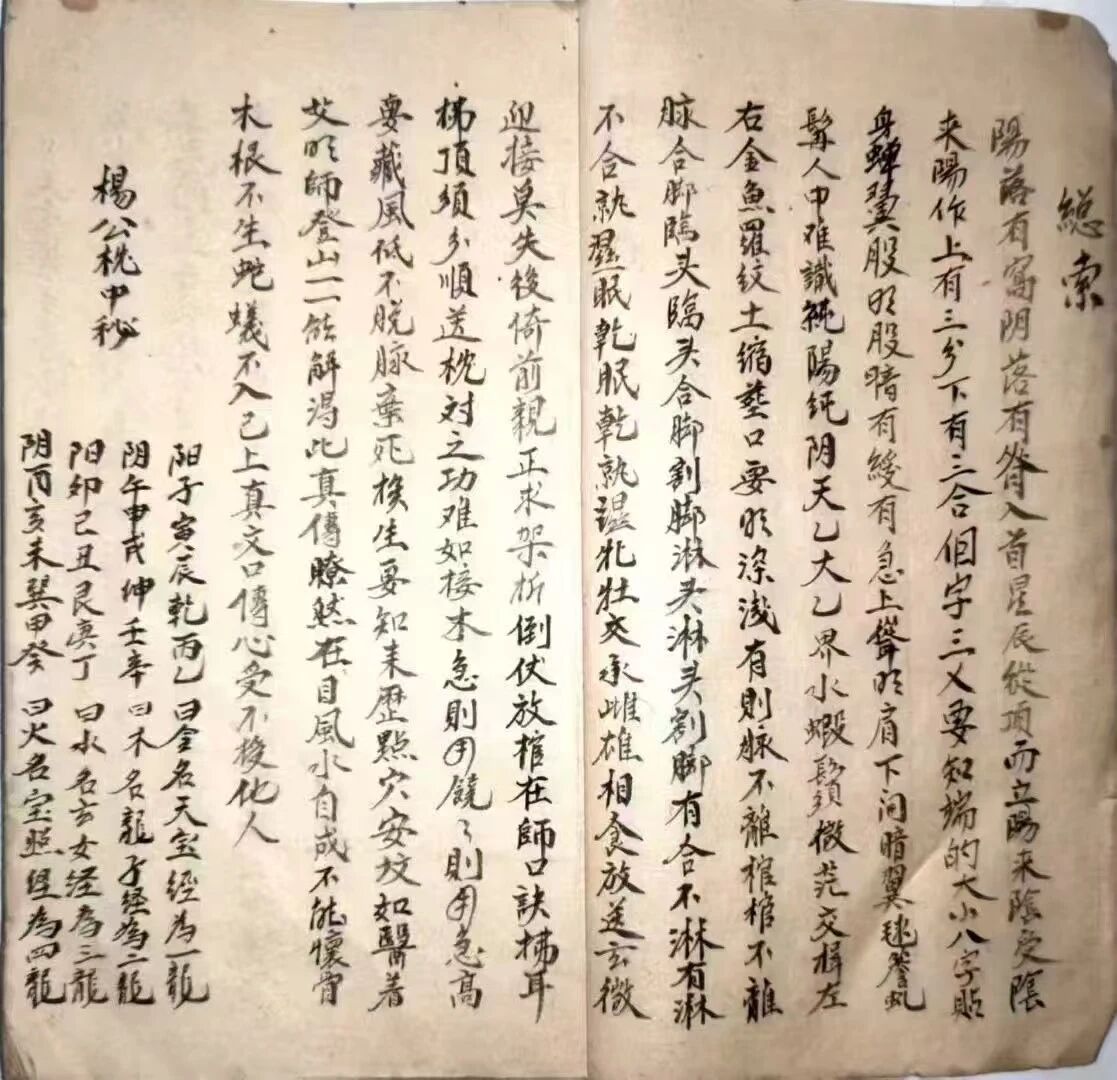 総索
陽落有窩阴落有脊入首星辰從項而立陽来陰受陰
来陽作上有三分下有三合個字三乂要知端的大小八字貼
身蟬翼股明股暗有緩有急上聳明肩下问暗翼毬簷虬
髯人中难識純陽純阴天乙太乙界水蝦鬚微茫交揖左
右金魚羅紋土縮塟口要明深浅有則脉不離棺棺不離
脉合脚臨头臨头合脚割脚淋头淋头割脚有合不淋有淋
不合孰湿眠乾眠乾孰湿牝牡交承雌雄相食放送玄微
迎接莫失後倚前親正求架折倒伏放棺在師口訣梯耳
梯頂須分順送枕対之功难如接木急則用饒々則用急高
要藏風低不脱脉棄死挨生要知来歴點穴安坟如醫着
艾明師登山一一能解渴此真傳瞭然在目風水自成不能懷骨
木根不生蛇蟻不入已上真文口傳心受不授他人
楊公枕中秘
阳子寅辰乾丙乙曰金名天宝經為一龍
阴午申戌坤壬辛曰木名龍子經為二龍
阳卯巳丑艮庚丁曰水名玄女經為三龍
阴酉亥未巽甲癸曰火名宝照經為四龍